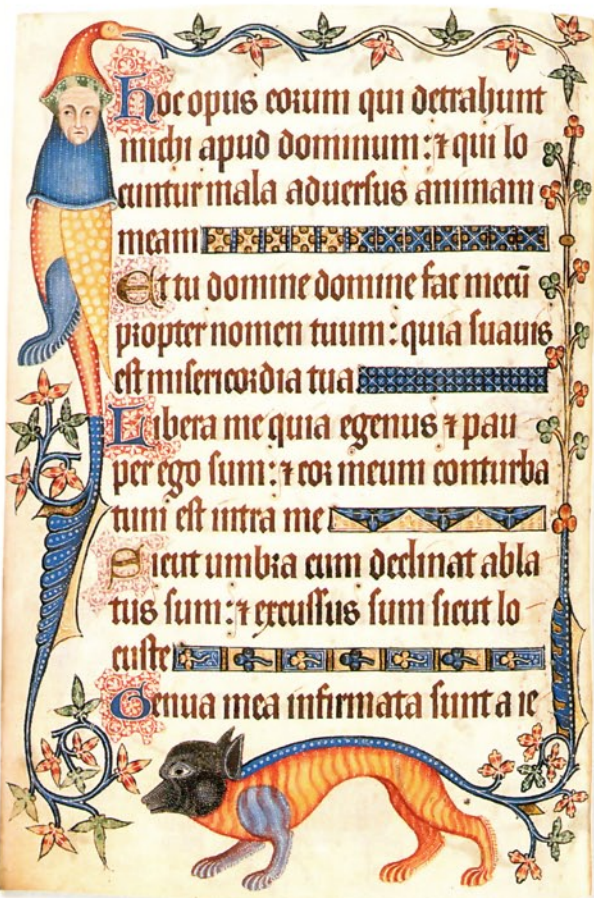 Hoc opus eorum qui detrahunt
michi apud dominum: ⁊ qui lo
cuntur mala adversus animam
meam
Et tu domine domine fac mecū
propter nomen tuum: quia suavis
est misericordia tua
Libera me quia egenus ⁊ pau
per ego sum: ⁊ cor meum conturba
tum est intra me
Sicut umbra cum declinat abla
tus sum: ⁊ excussus sum sicut lo
custe
Genua mea infirmata sunt a ie